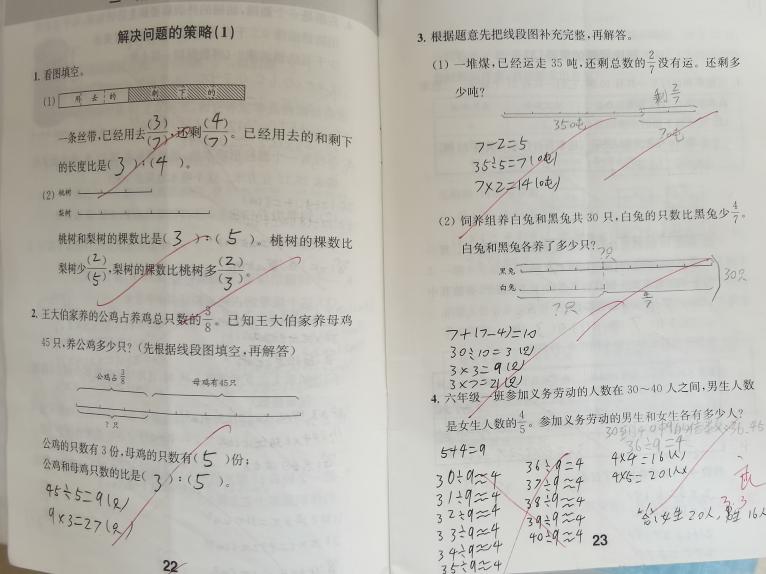 解决问题的策略(1)
1. 看图填空。
(1) 用去的 剩下的
一条丝带,已经用去(3)/(7),还剩(4)/(7)。已经用去的和剩下
的长度比是(3):(4)。
(2) 桃树
梨树
桃树和梨树的棵数比是(3):(5)。桃树的棵数比
梨树少(2)/(5),梨树的棵数比桃树多(2)/(3)。
2. 王大伯家养的公鸡占养鸡总只数的3/8。已知王大伯家养母鸡
45只,养公鸡多少只?(先根据线段图填空,再解答)
公鸡占3/8 母鸡有45只
?只
公鸡的只数有3份,母鸡的只数有(5)份;
公鸡和母鸡只数的比是(3):(5)。
45÷5=9(只)
9×3=27(只)
22
3. 根据题意先把线段图补充完整,再解答。
(1) 一堆煤,已经运走35吨,还剩总数的2/7没有运。还剩多
少吨?
剩2/7
350吨 ?吨
7-2=5
35÷5=7(吨)
7×2=14(吨)
(2) 饲养组养白兔和黑兔共30只,白兔的只数比黑兔少4/7。
白兔和黑兔各养了多少只?
?只
黑兔
白兔
30只
?只 4/7
7+(7-4)=10
30÷10=3(只)
3×3=9(只)
3×7=21(只)
4. 六年级一班参加义务劳动的人数在30~40人之间,男生人数
是女生人数的4/5。参加义务劳动的男生和女生各有多少人?
36÷9=4
5+4=9
30÷9≈4
31÷9≈4
32÷9≈4
33÷9≈4
34÷9≈4
35÷9≈4
36÷9=4
37÷9≈4
38÷9≈4
39÷9≈4
40÷9≈4
4×4=16(人)
4×5=20(人)
答:女生20人,男生16人
23